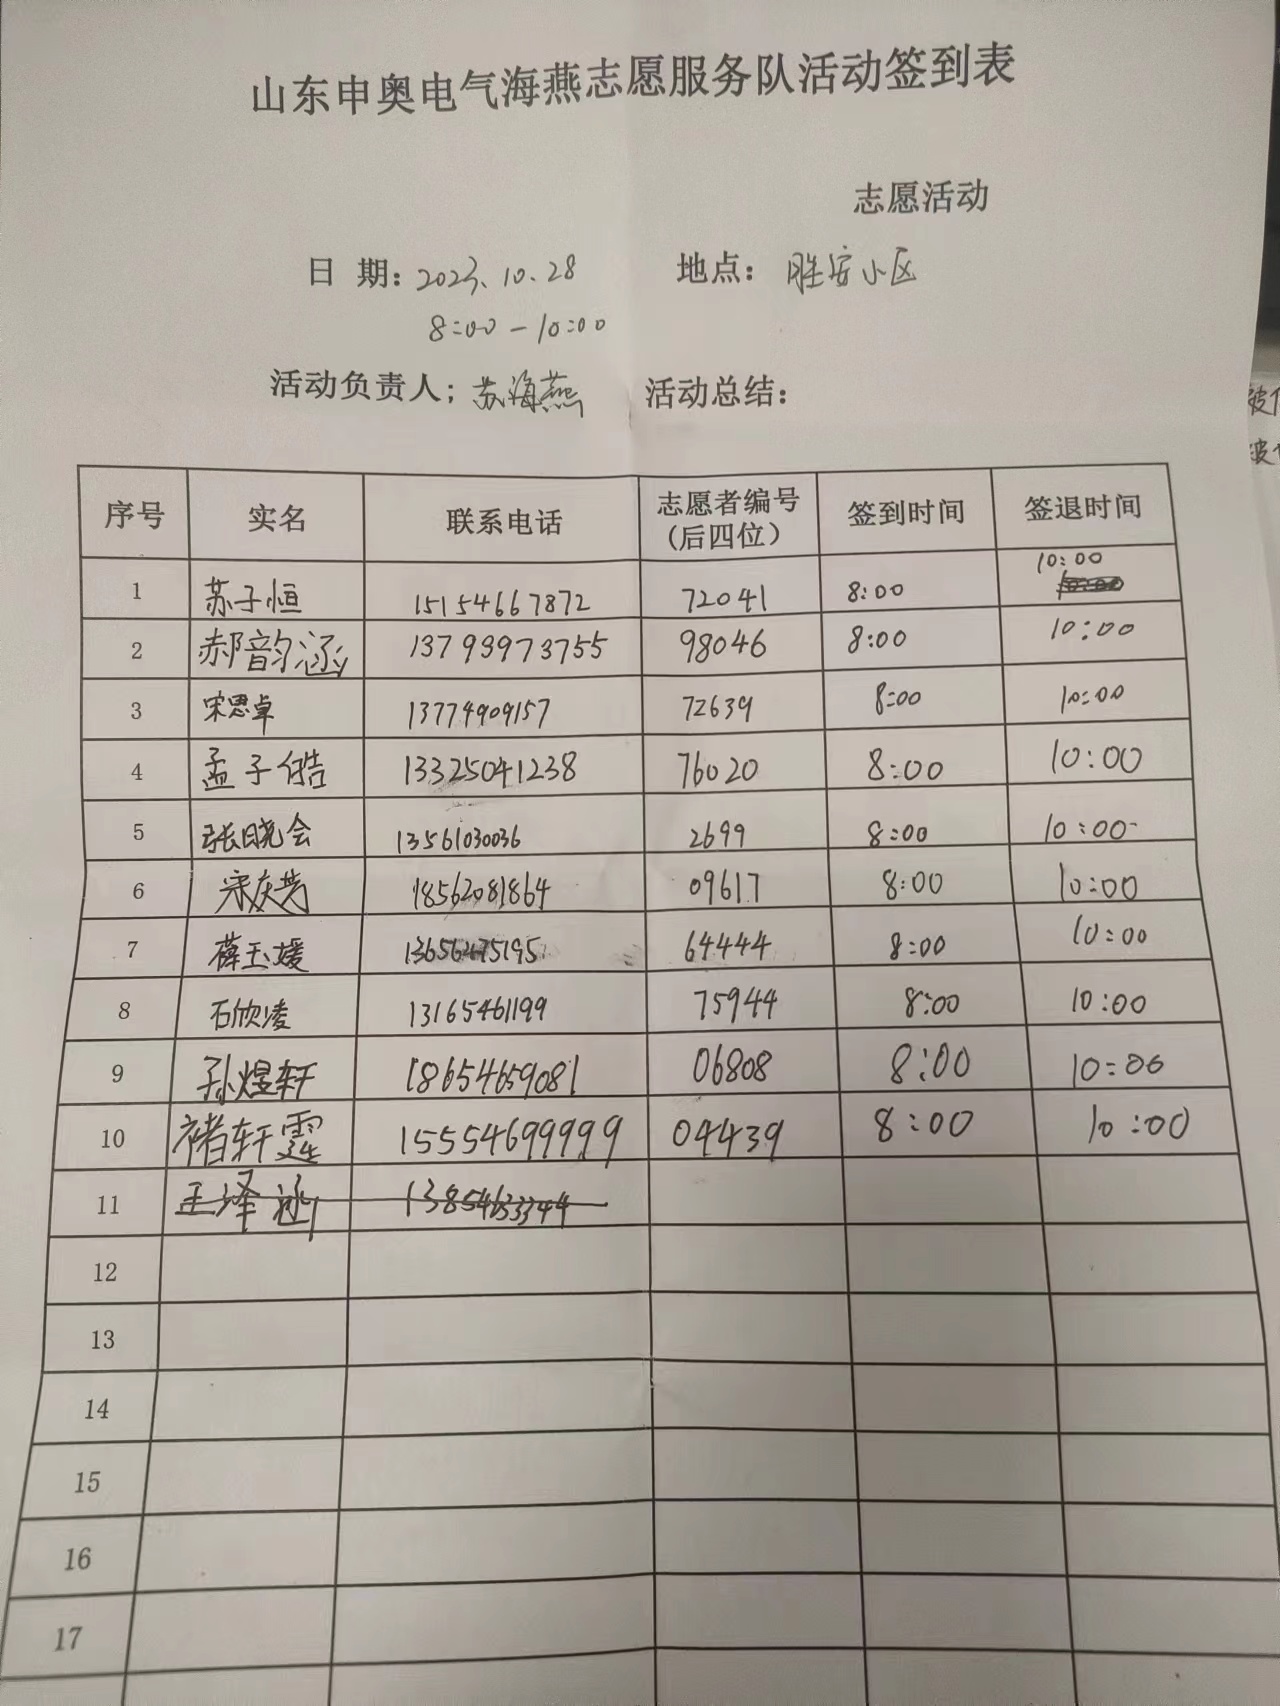 山东申奥电气海燕志愿服务队活动签到表
志愿活动
日 期: 2023.10.28 地点: 胜安小区
8:00-10:00
活动负责人; 苏海燕 活动总结:
序号 实名 联系电话 志愿者编号(后四位) 签到时间 签退时间
1 苏子恒 15154667872 72041 8:00 10:00
2 郝韵涵 13793973755 98046 8:00 10:00
3 宋思卓 13774909157 72639 8:00 10:00
4 孟子皓 13325041238 76020 8:00 10:00
5 张晓会 13561030036 2699 8:00 10:00
6 宋庆芳 18562081864 09617 8:00 10:00
7 薛玉媛 64444 8:00 10:00
8 石欣凌 13165461199 75944 8:00 10:00
9 孙煜轩 18654659081 06808 8:00 10:00
10 褚轩霆 15554699999 04439 8:00 10:00
11 王泽
12
13
14
15
16
17